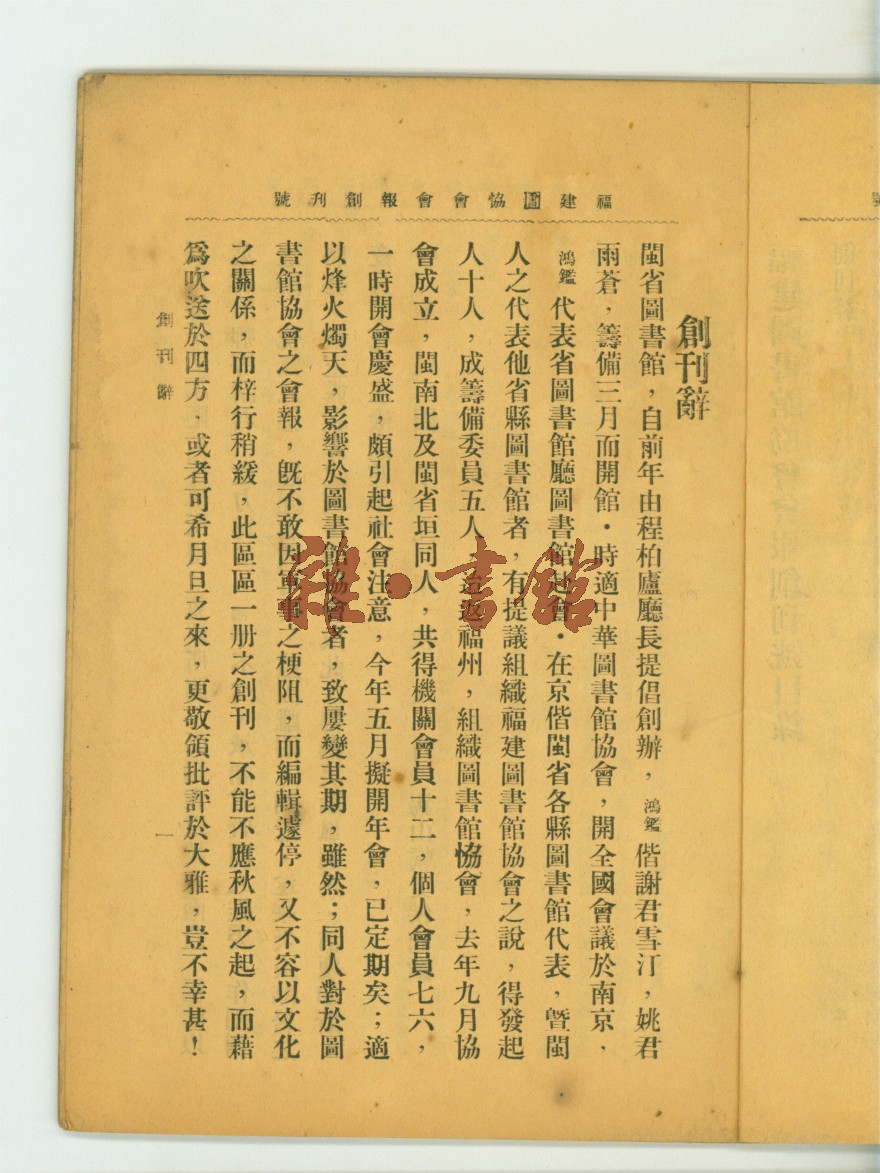 福建圕恊會會報創刊號
創刊辭
閩省圖書館，自前年由程柏廬廳長提倡創辦，鴻鑑偕謝君雪汀，姚君
雨蒼，籌備三月而開館・時適中華圖書館協會，開全國會議於南京，
鴻鑑代表省圖書館廳圖書館赴會・在京偕閩省各縣圖書館代表，曁閩
人之代表他省縣圖書館者，有提議組織福建圖書館協會之說，得發起
人十人，成籌備委員五人，迨返福州，組織圖書館恊會，去年九月協
會成立，閩南北及閩省垣同人，共得機關會員十二，個人會員七六，
一時開會慶盛，頗引起社會注意，今年五月擬開年會，已定期矣；適
以烽火燭天，影響於圖書館協會者，致屢變其期，雖然；同人對於圖
書館協會之會報，旣不敢因軍事之梗阻，而編輯遽停，又不容以文化
之關係，而梓行稍緩，此區區一册之創刊，不能不應秋風之起，而藉
爲吹送於四方，或者可希月旦之來，更敬領批評於大雅，豈不幸甚！
創刊辭
一
雜・書館